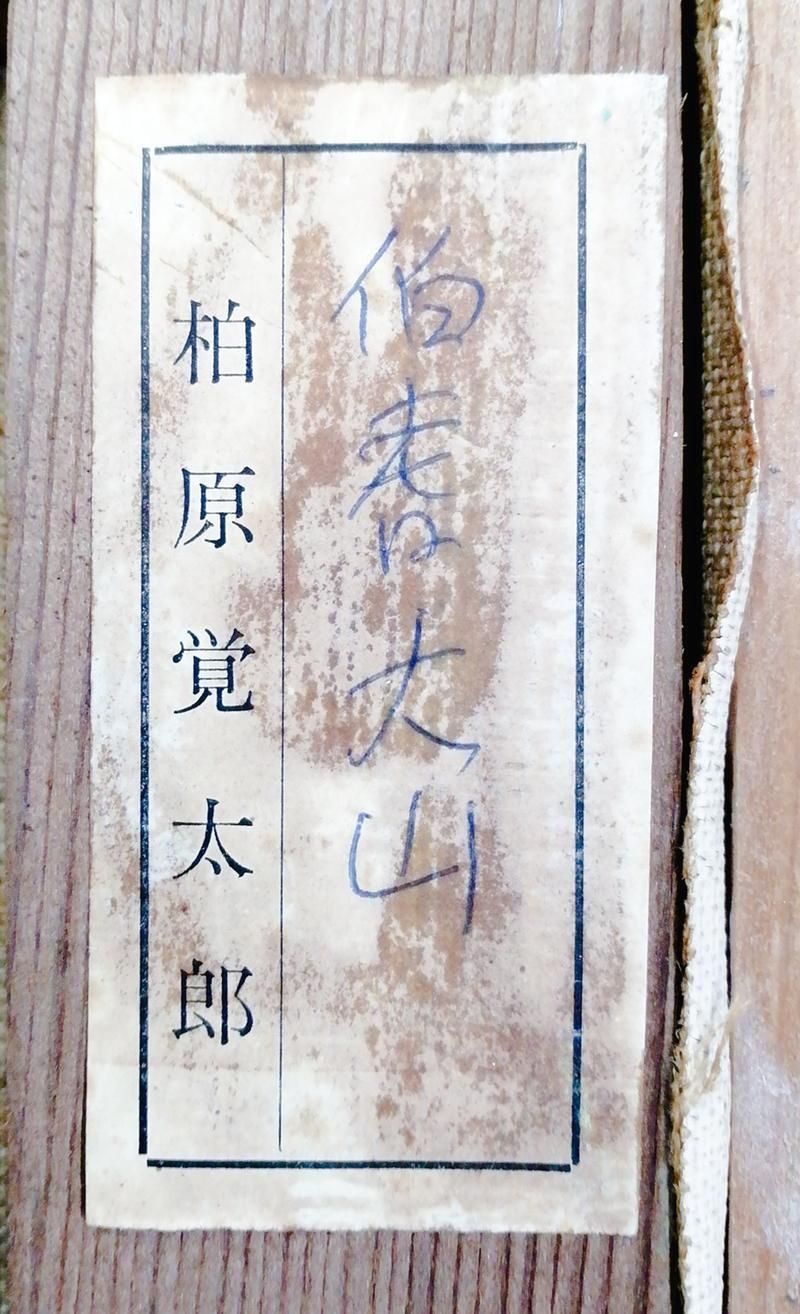 伯耆大山
柏原覚太郎